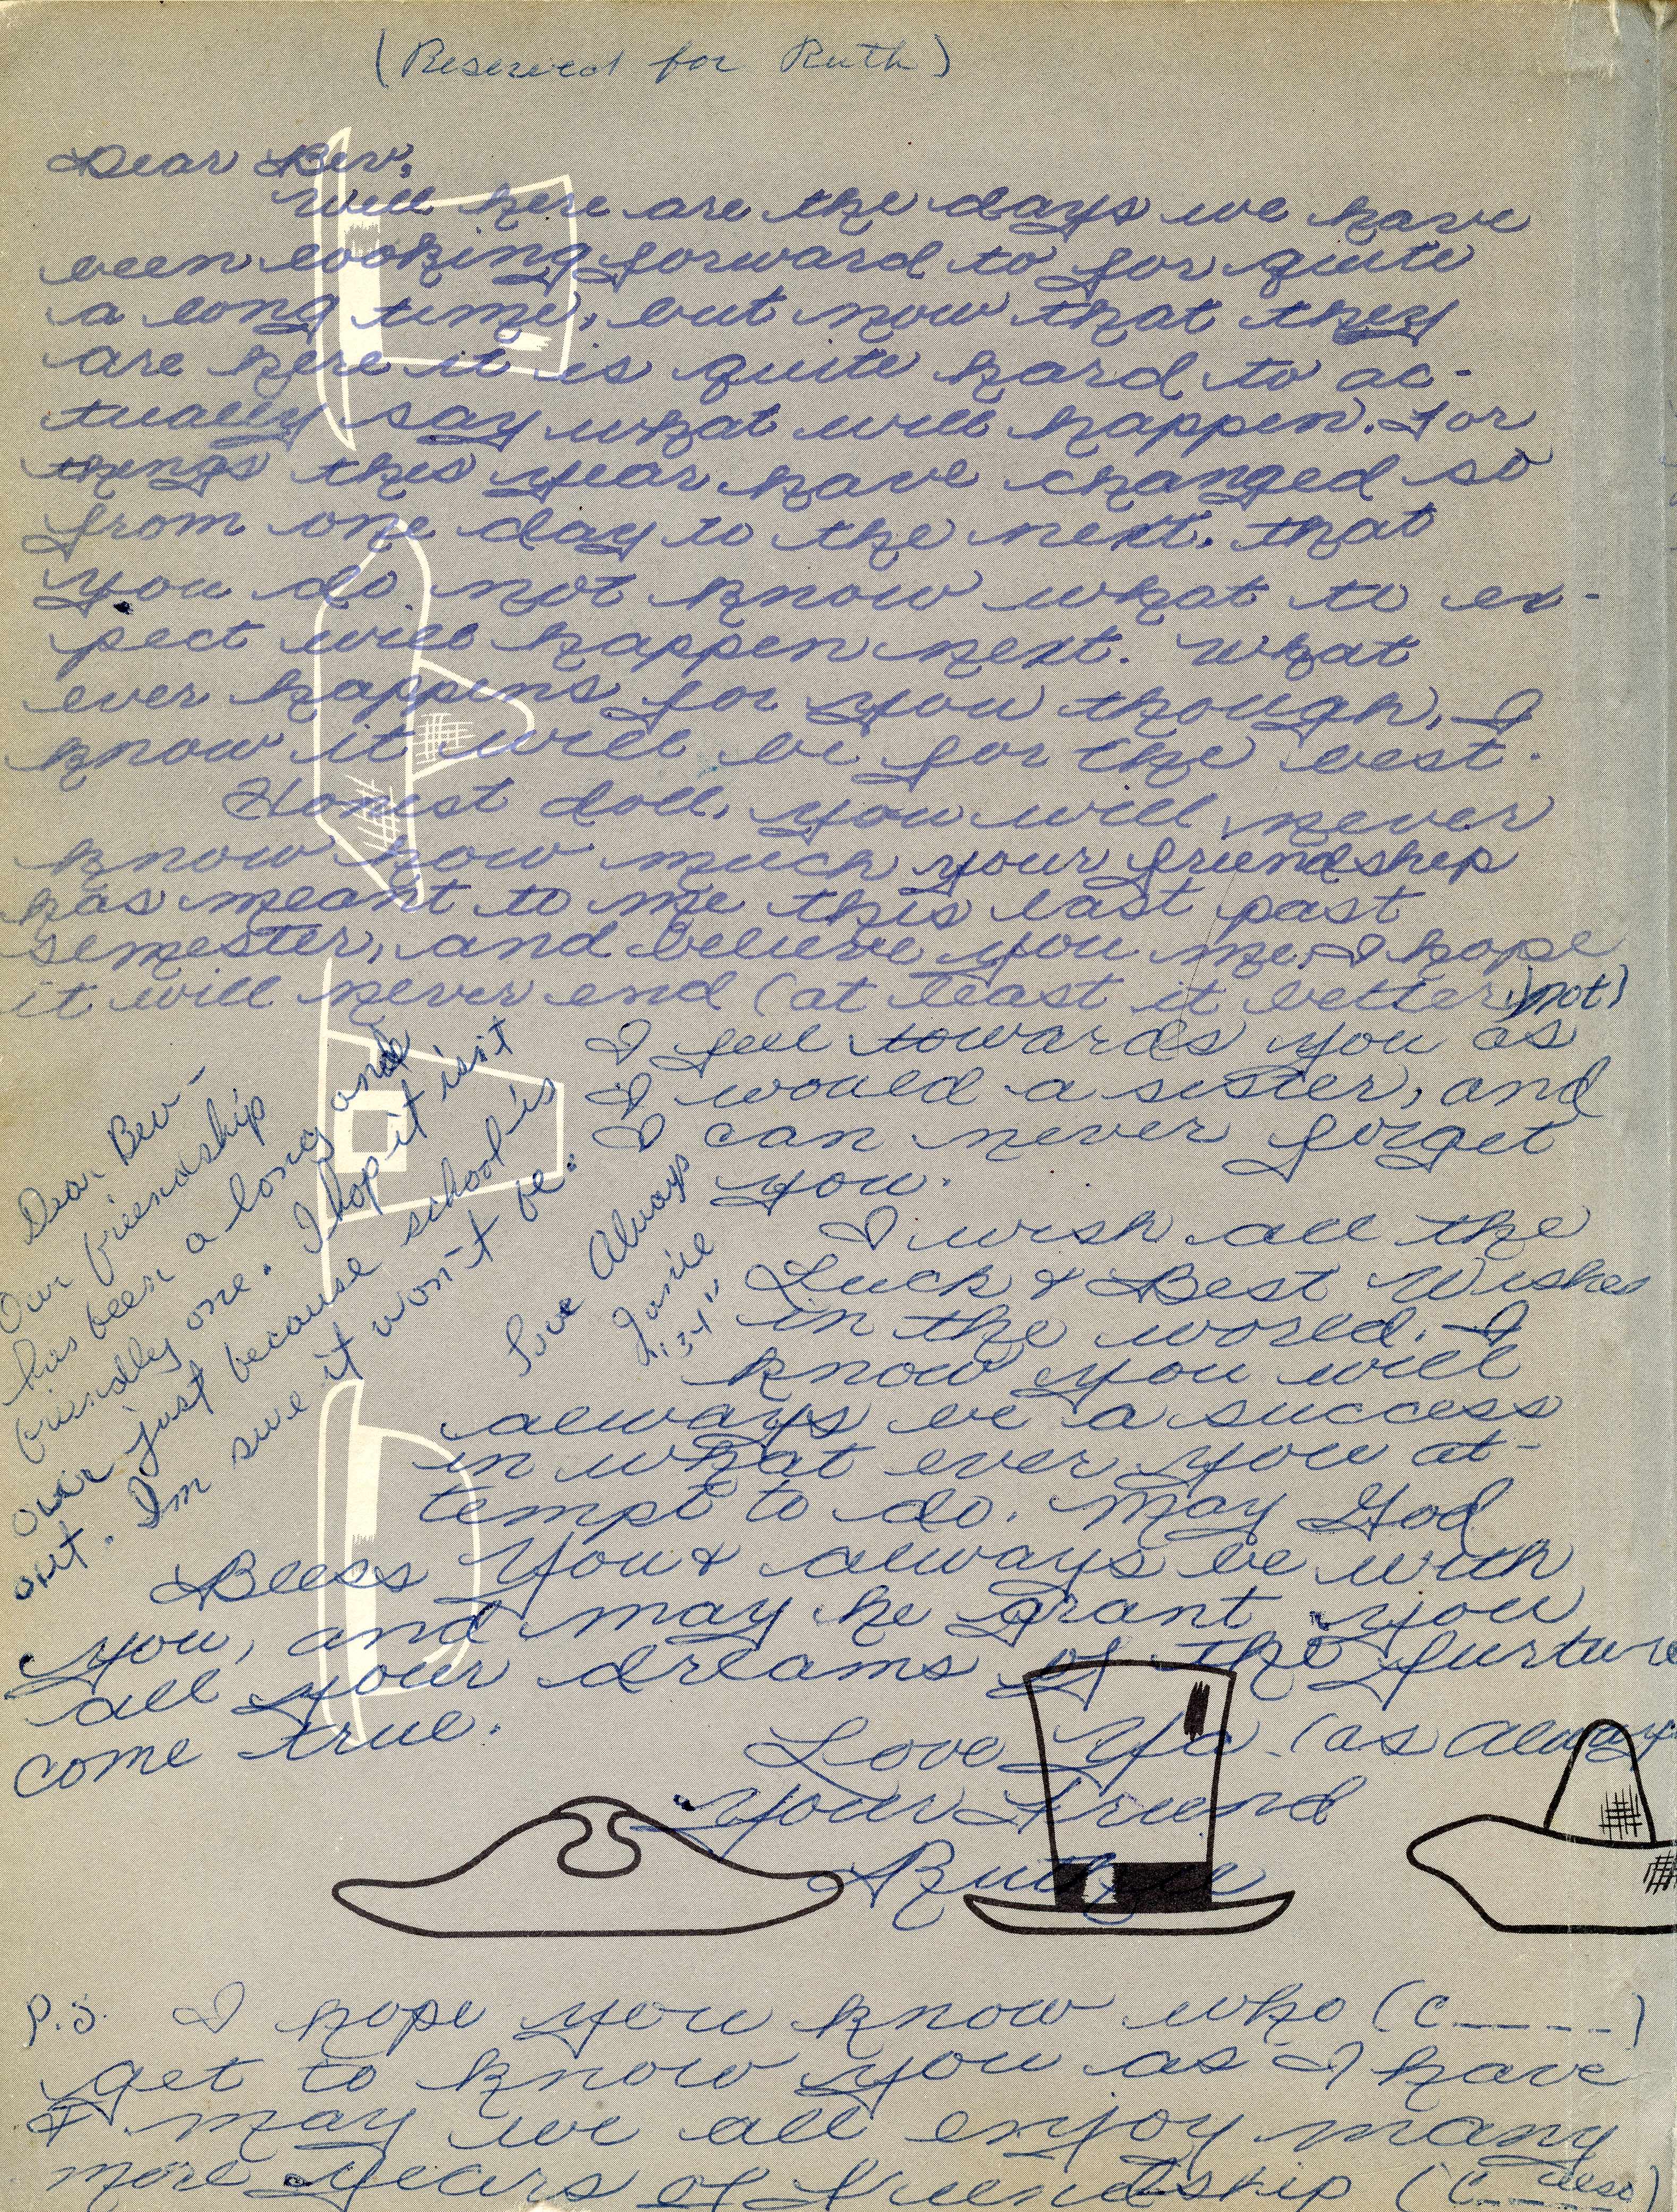 (Reserved for Ruth)
Dear Bev,
Well here are the days we have
been looking forward to for quite
a long time, but now that they
are here it is quite hard to ac-
tually say what will happen. For
things this year have changed so
from one day to the next, that
you do not know what to ex-
pect will happen next. What
ever happens for you though, I
know it will be for the best.
Honest doll, you will never
know how much your friendship
has meant to me this last past
semester, and believe you me, I hope
it will never end (at least it better not)
I feel towards you as
I would a sister, and
I can never forget
you.
I wish all the
Luck & Best Wishes
in the world. I
know you will
always be a success
in what ever you at-
tempt to do. May God
Bless You & always be with
you, and may he grant you
all your dreams of the furture
come true.
Love Ya (as always
Your Friend
Ruthie
P.S. I hope you know who (C_ _ _ _)
get to know you as I have
& may we all enjoy many
more years of friendship (C_ _ else)
Dear Bev-
Our friendship
has been a long and
friendly one. I hop it isn't
over just because school is
out. I'm sure it won't be.
Love Always
Janie
"34"